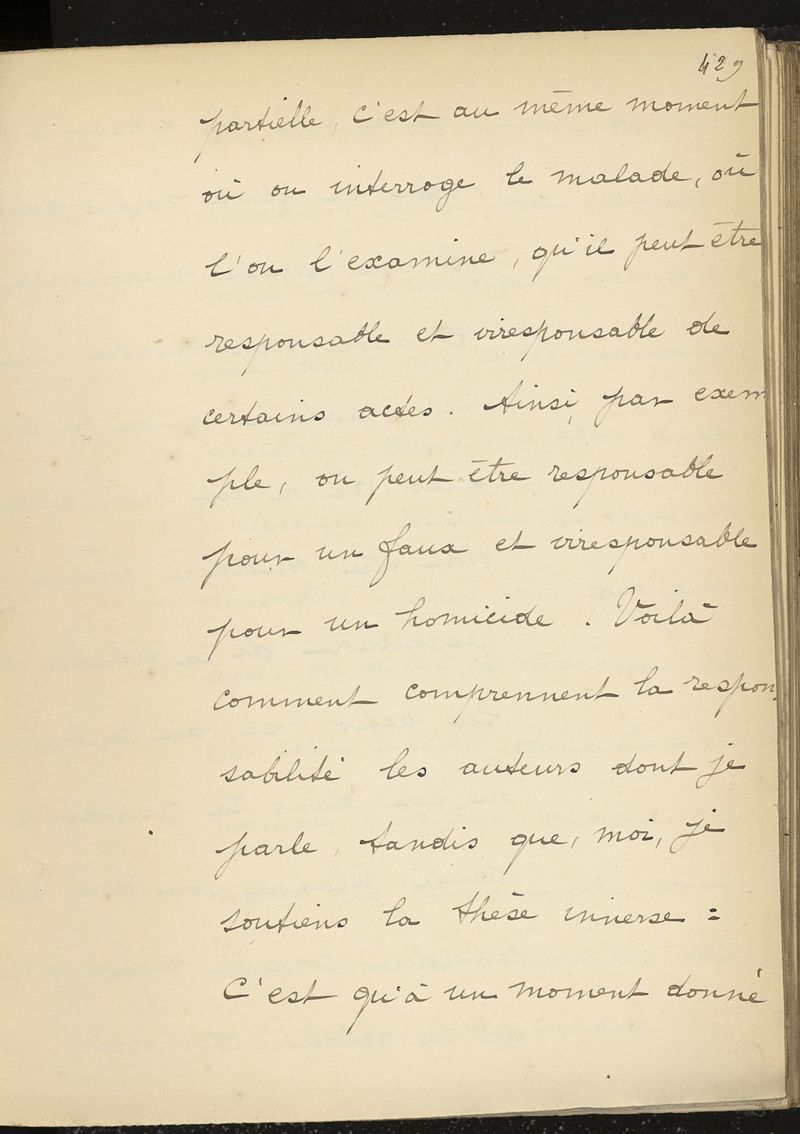 429
partielle, c'est au même moment
où on interroge le malade, où
l'on l'examine, qu'il peut être
responsable et irresponsable de
certains actes. Ainsi, par exem
ple, on peut être responsable
pour un faux et irresponsable
pour un homicide. Voilà
comment comprennent la respon
sabilité les auteurs dont je
parle, tandis que, moi, je
soutiens la thèse inverse :
C'est qu'à un moment donné